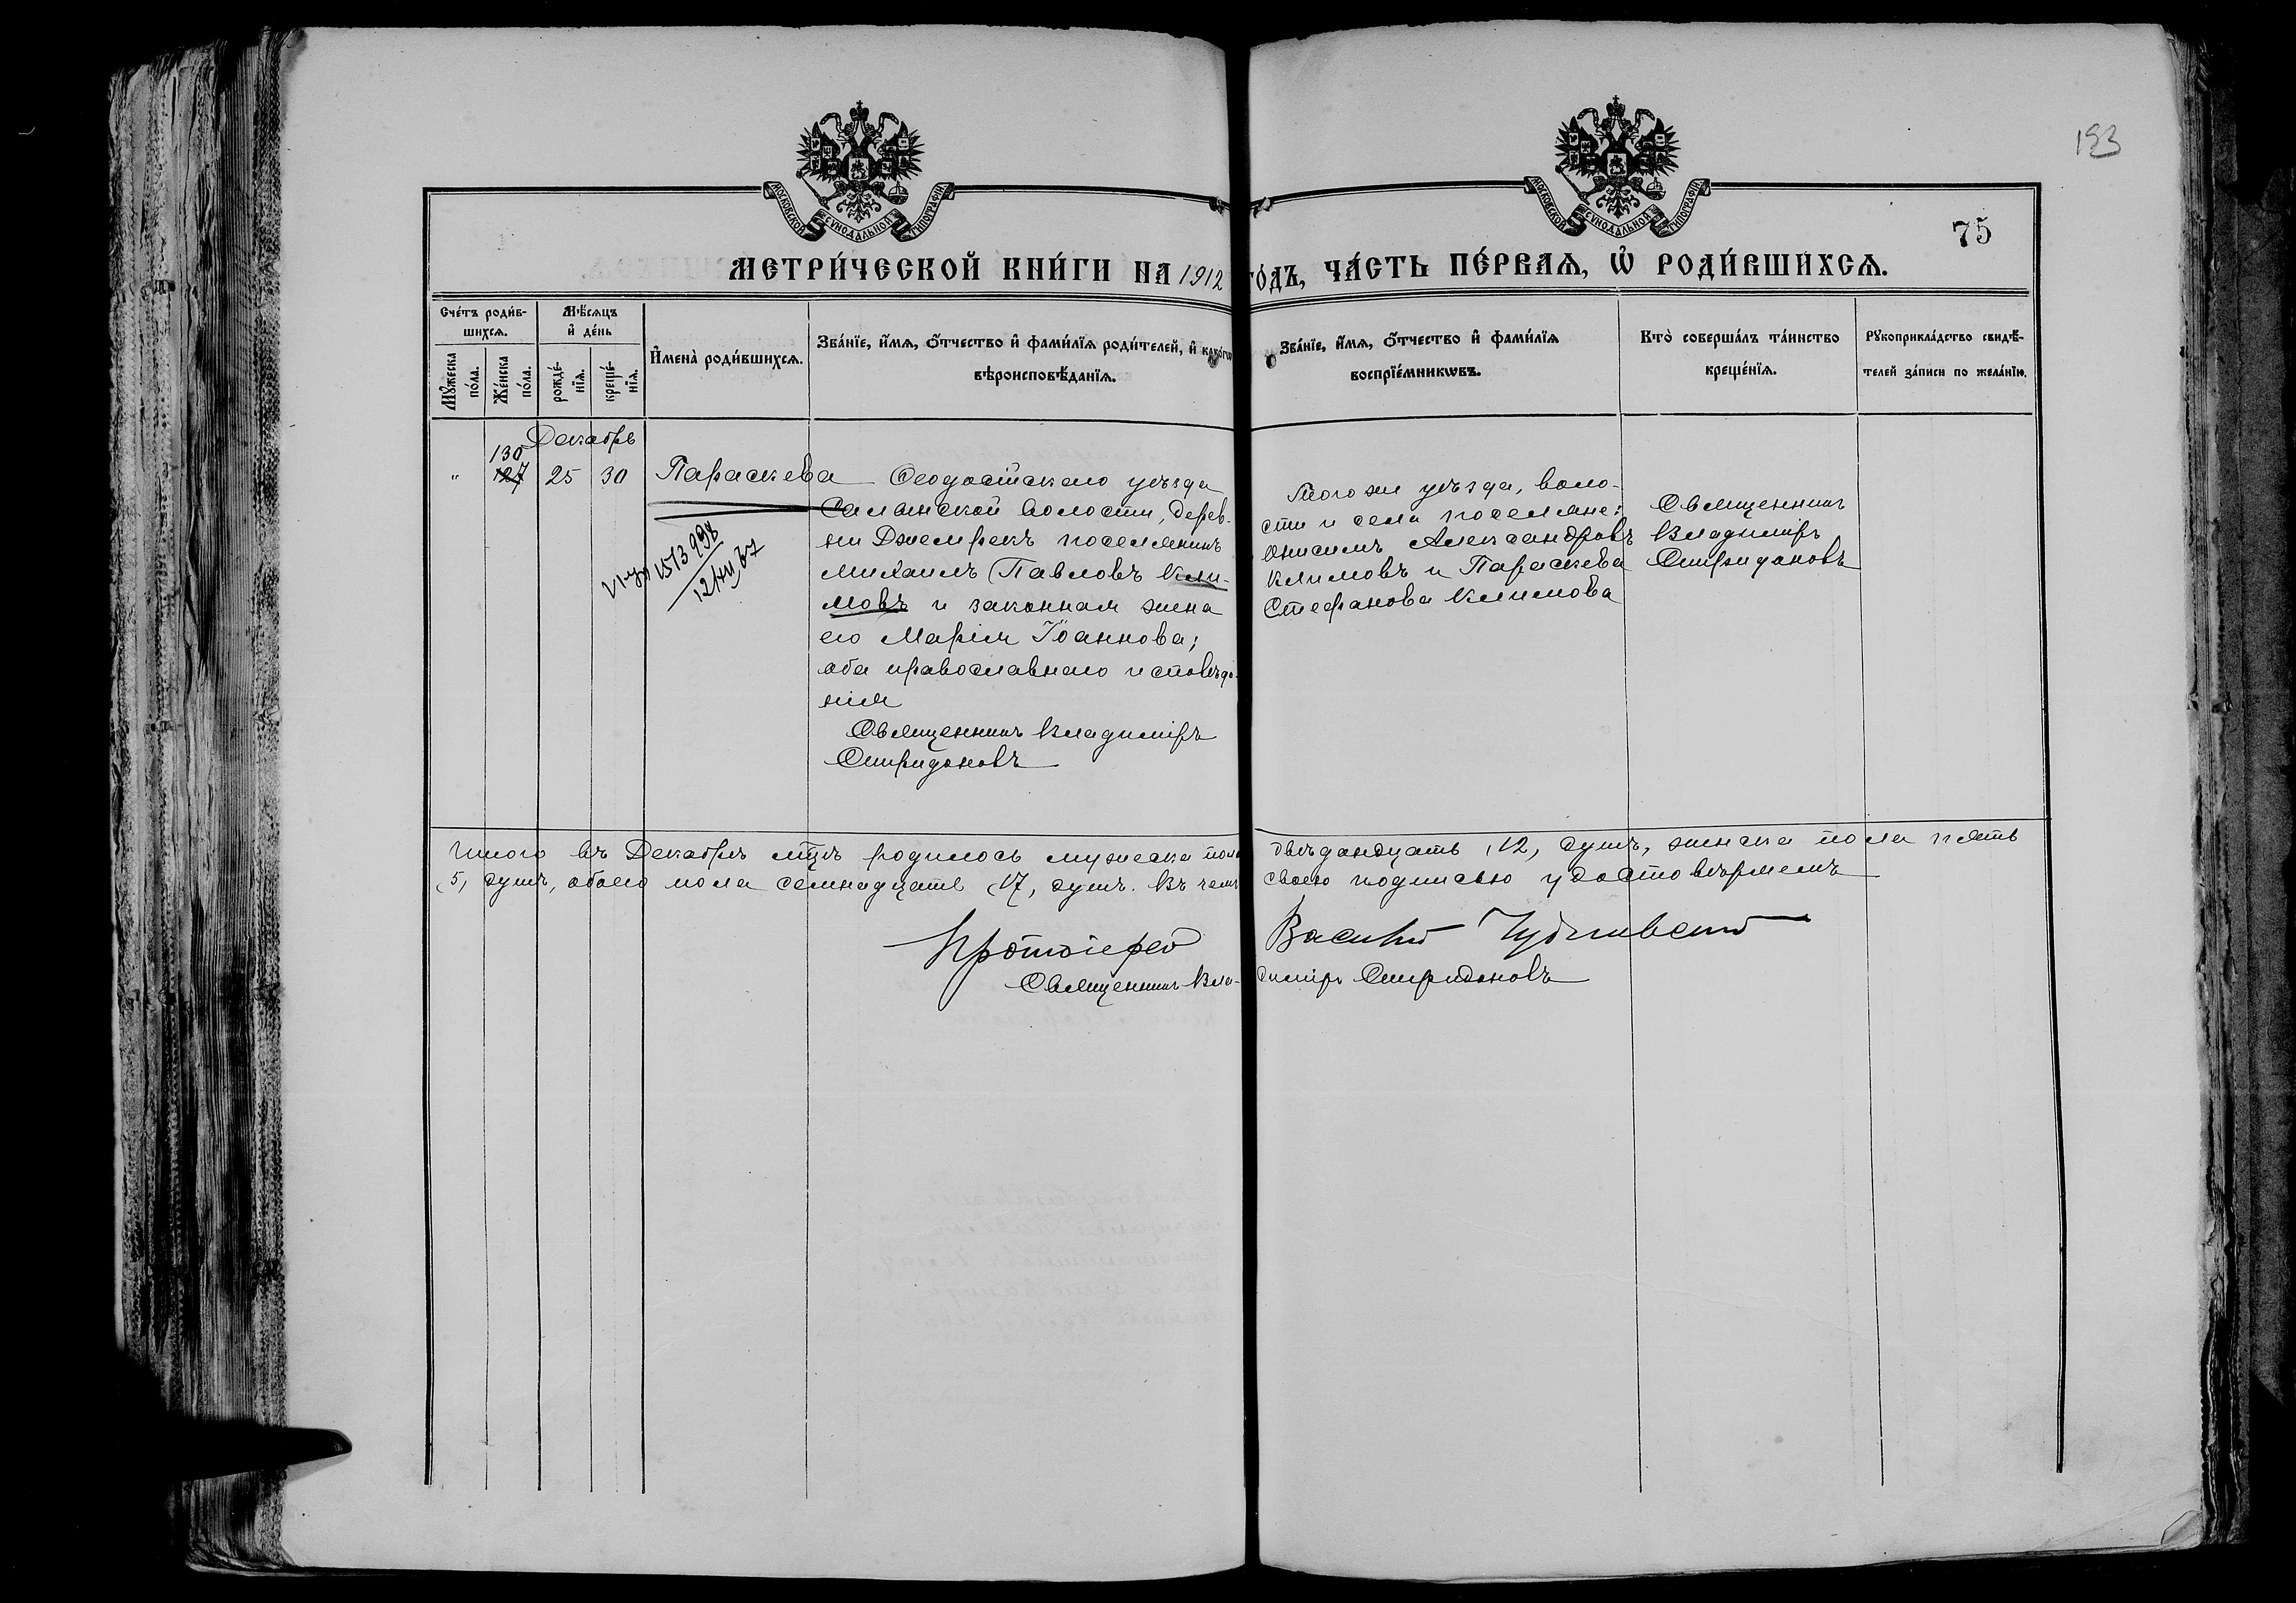 193
МОСКОВСКОЙ СѴНОДАЛЬНОЙ ТИПОГРАФІИ
МОСКОВСКОЙ СѴНОДАЛЬНОЙ ТИПОГРАФІИ
75
МЕТРИ́ЧЕСКОЙ КНИ́ГИ НА 1912 ГО́ДЪ, ЧА́СТЬ ПЕ́РВАѦ, Ѡ҆ РОДИ́ВШИХСѦ.
Сче́тъ роди́в-
шихсѧ.
Мꙋ́жеска по́ла.
Же́нска по́ла.
Мѣ́сѧцъ
и҆ де́нь
рожде́-
нїѧ.
креще́-
нїѧ.
И҆мена̀ роди́вшихсѧ.
Зва́нїе, и҆́мѧ, ѻ҆́тчество и҆ фами́лїѧ роди́телей, и҆ како́гѡ
вѣроисповѣ́данїѧ.
Зва́нїе, и҆́мѧ, ѻ҆́тчество и҆ фами́лїѧ
воспрїе́мникѡвъ.
Кто̀ соверша́лъ та́инство
креще́нїѧ.
Рꙋкоприкла́дство свидѣ́-
телей за́писи по жела́нїю.
Декабрь
130
" 127 25 30 Параскева
Ѳеодосійскаго уѣзда
Салынской волости, дерев-
ни Джемрекъ поселянинъ
Михаилъ Павловъ Кли-
мовъ и законная жена
его Марія Іоаннова;
оба православнаго исповѣда-
нія
Священникъ Владиміръ
Спиридоновъ
1573998
Того же уѣзда, воло-
сти и села поселяне:
Онисимъ Александровъ
Климовъ и Параскева
Стефанова Климова
Священникъ
Владиміръ
Спиридоновъ
Итого въ Декабрѣ мцѣ родилось мужеска пола двѣнадцать (12) душъ, женска пола пять
(5) душъ, обоего пола семнадцать (17) душъ. Въ чемъ своею подписью удостовѣряемъ
Протоіерей Василій
Священникъ Владиміръ Спиридоновъ